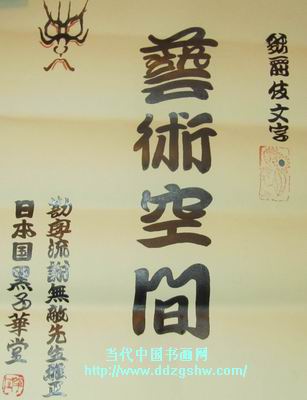 伎文字
藝術空間
勘亭流謝無敵先生雅正
日本国黑子華堂
当代中国书画网
http://www.ddzgshw.com/